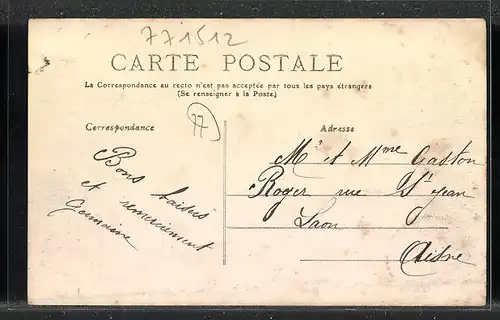 771512
CARTE POSTALE
La Correspondance au recto n'est pas acceptée par tous les pays étrangers
(Se renseigner à la Poste)
77
Correspondance
Bons baisers
et remerciement
Germaine
Adresse
Mr et Mme Gaston
Roger rue St Jean
Laon
Aisne